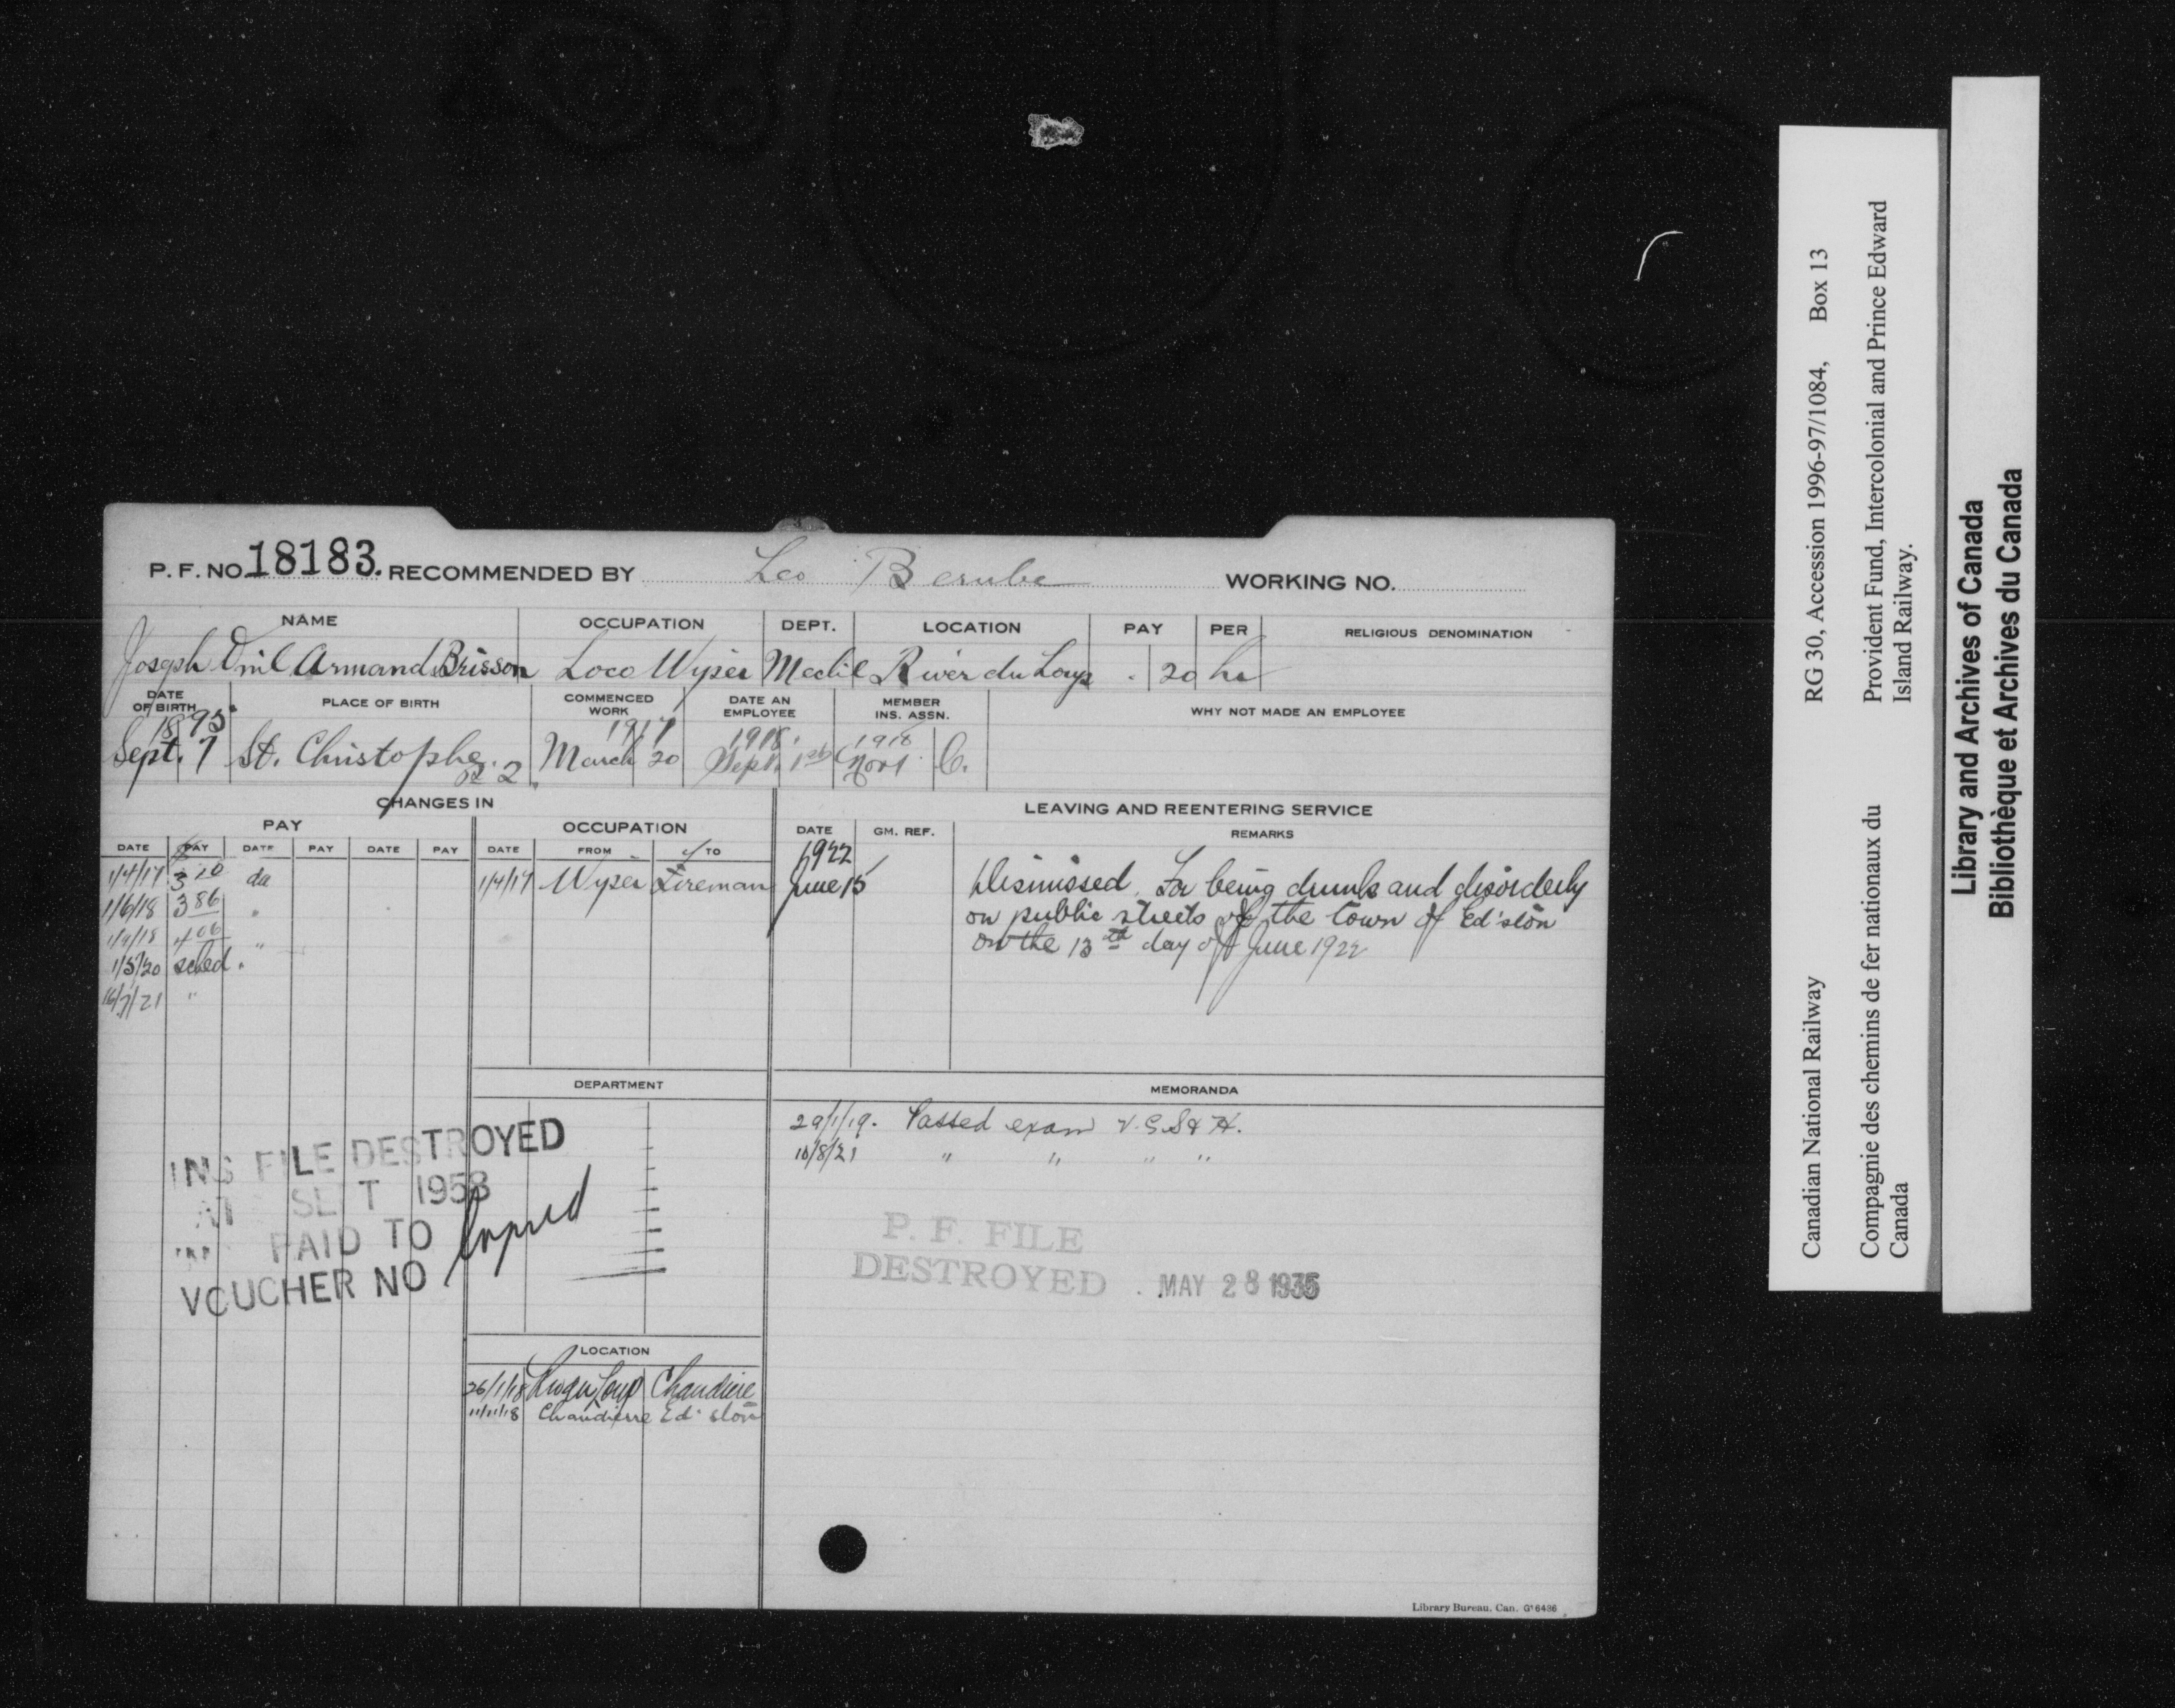 P. F. NO. 18183. RECOMMENDED BY Leo Berube WORKING NO.
NAME OCCUPATION DEPT. LOCATION PAY PER RELIGIOUS DENOMINATION
Joseph Armand Brisson Loco Wyper Mech'l River du Loup . 20 hr
DATE OF BIRTH PLACE OF BIRTH COMMENCED WORK DATE AN EMPLOYEE MEMBER INS. ASSN. WHY NOT MADE AN EMPLOYEE
1895 1917 1918. 1918
Sept. 7 St. Christophe March 20 Sept. 1st Nov 1 C.
CHANGES IN
LEAVING AND REENTERING SERVICE
PAY OCCUPATION
DATE GM. REF. REMARKS
DATE PAY DATE PAY DATE PAY DATE FROM TO
1922
1/4/17 3 10 da 1/4/17 Wyper Fireman June 15 Dismissed. For being drunk and disorderly
1/6/18 3 86 " on public streets of the town of Ed'ston
1/9/18 4 06 " on the 13th day of June 1922
1/5/20 sched.
16/7/21 "
DEPARTMENT
MEMORANDA
29/1/19. Passed exam V. C. S & H.
10/8/21 " " " "
INS FILE DESTROYED
SEPT 1958
PAID TO
VOUCHER NO
Copied
P. F. FILE
DESTROYED . MAY 28 1935
LOCATION
26/1/18 Riv du Loup Chaudiere
11/11/18 Chaudierre Ed'ston
Library Bureau, Can. G16486
Canadian National Railway RG 30, Accession 1996-97/1084, Box 13
Compagnie des chemins de fer nationaux du Canada
Provident Fund, Intercolonial and Prince Edward Island Railway.
Library and Archives of Canada
Bibliothèque et Archives du Canada